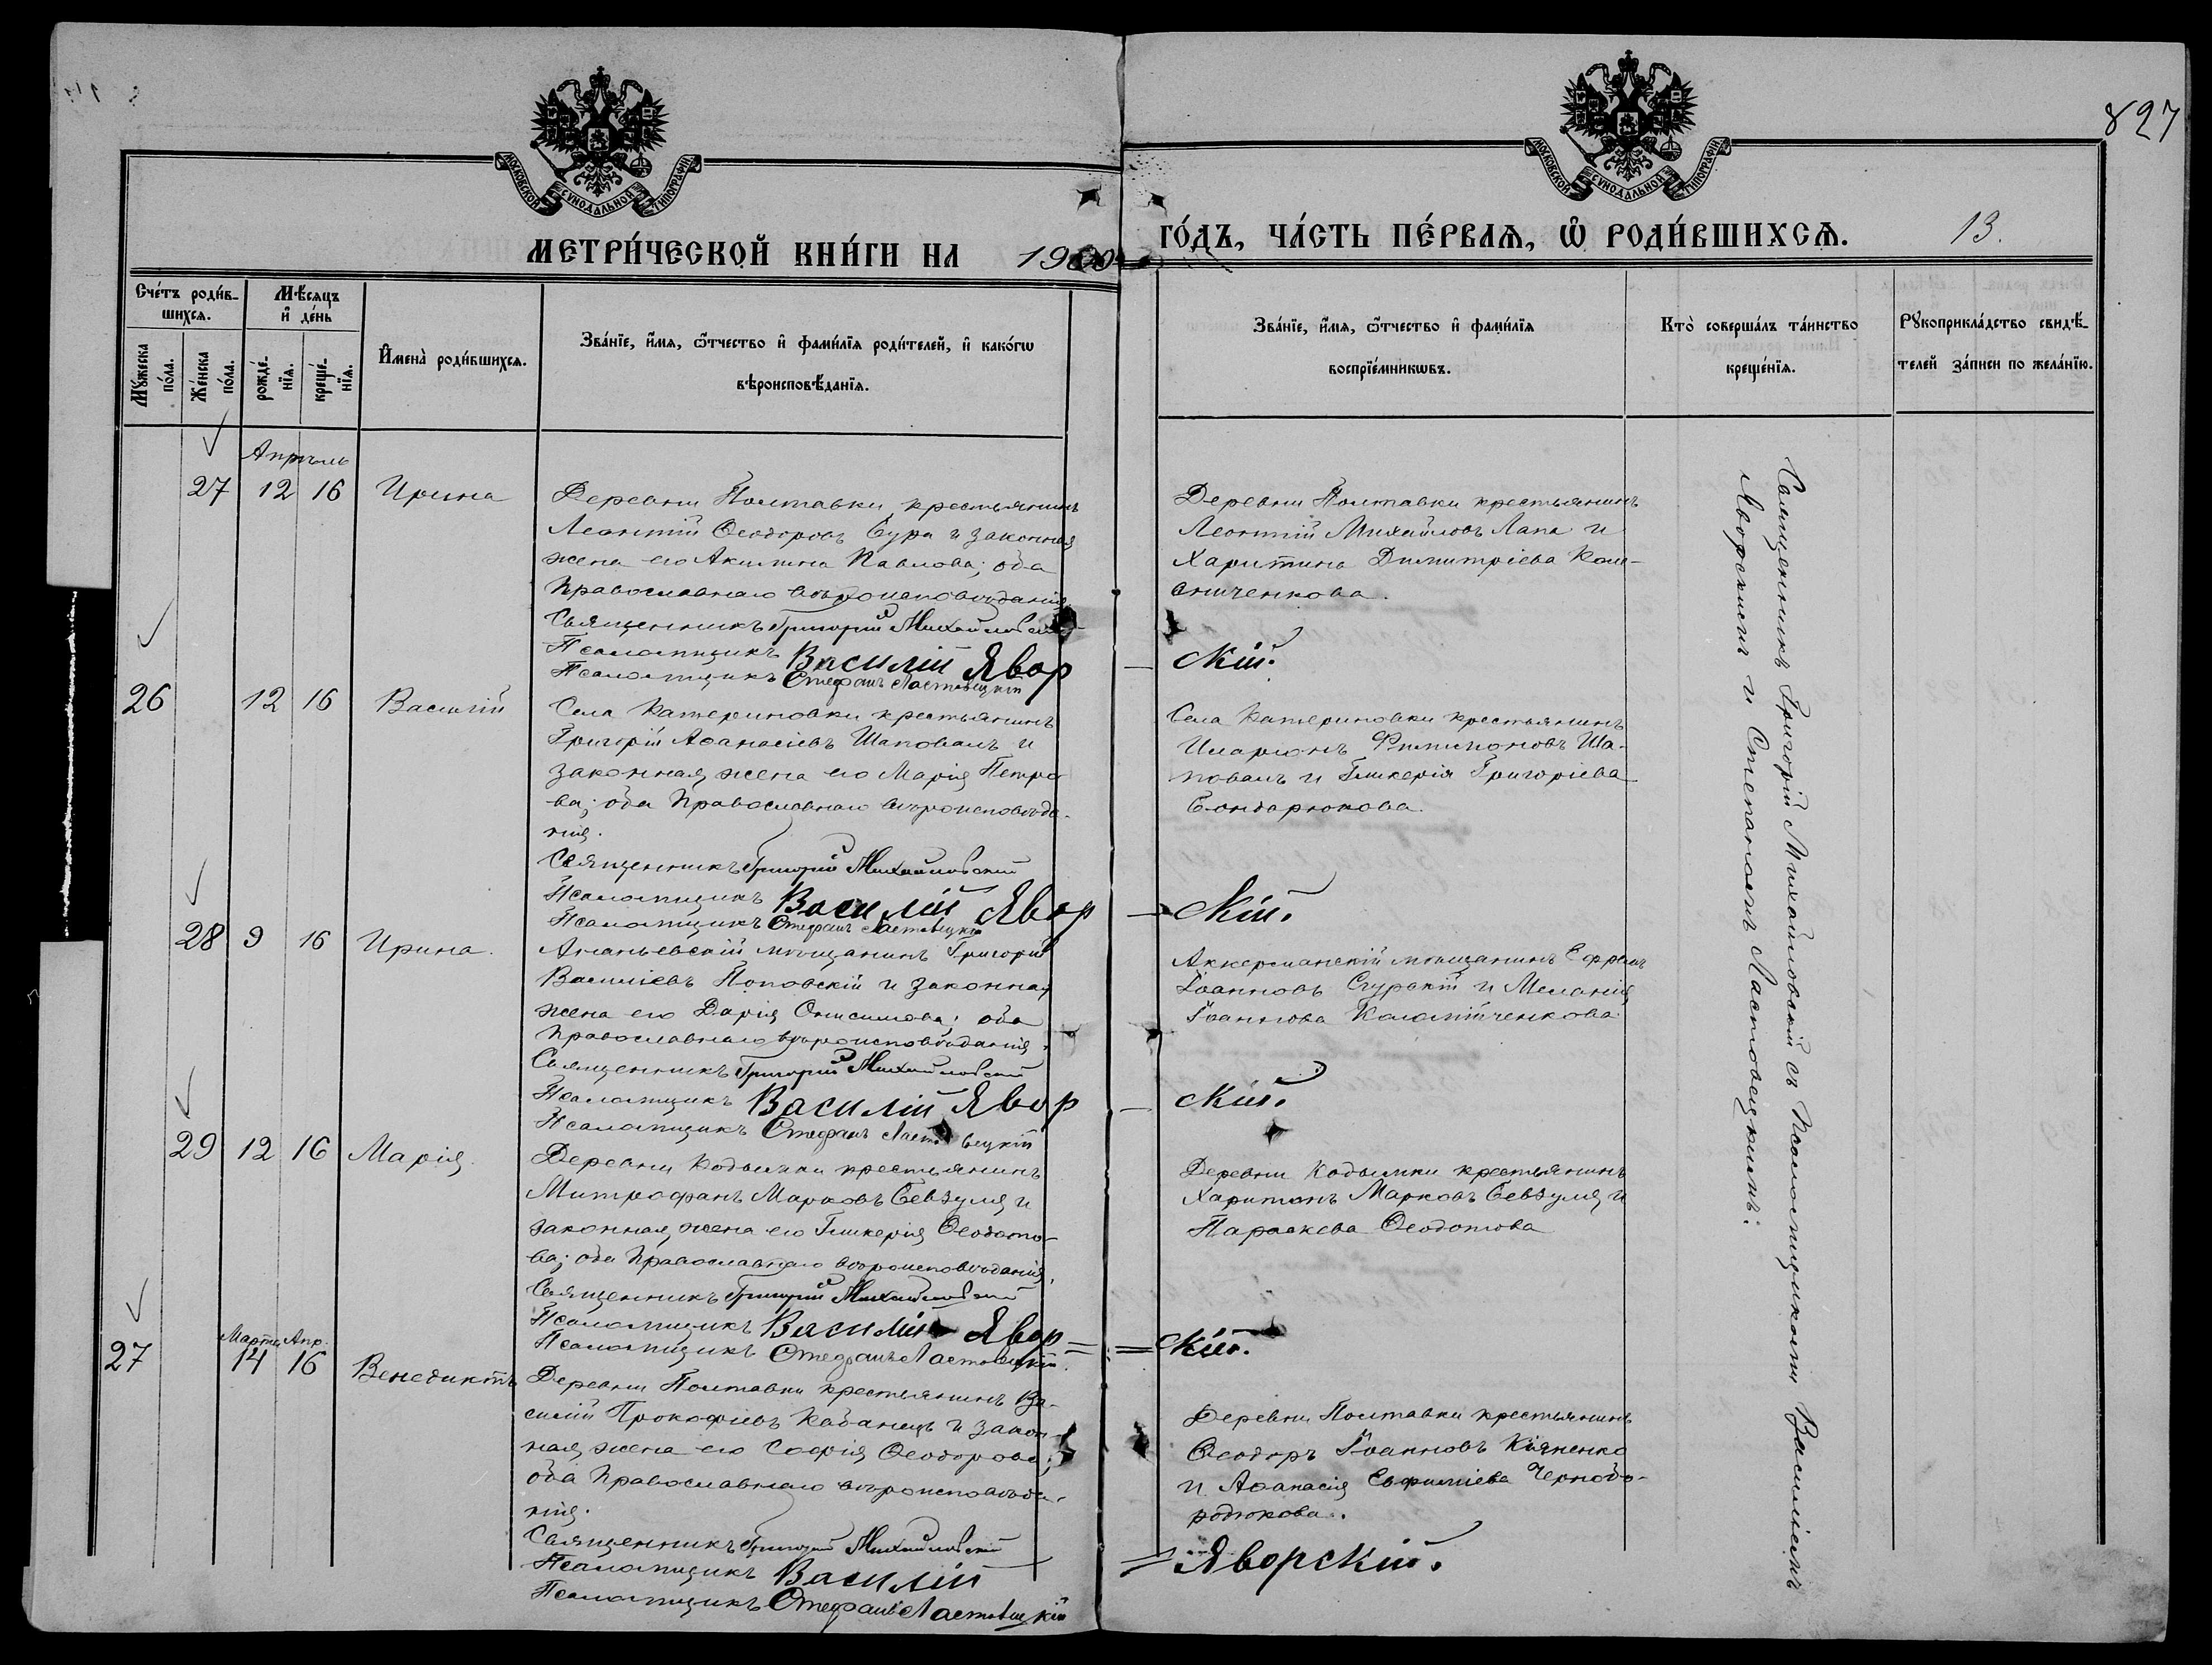 827
МОСКОВСКОЙ СѴНОДАЛЬНОЙ ТИПОГРАФІИ
МОСКОВСКОЙ СѴНОДАЛЬНОЙ ТИПОГРАФІИ
МЕТРИ́ЧЕСКОЙ КНИ́ГИ НА 1900
ГО́ДЪ, ЧА́СТЬ ПЕ́РВАѦ, Ѽ РОДИ́ВШИХСѦ. 13.
Сче́тъ роди́в-
шихсѧ.
Мꙋ́жеска
по́ла.
Же́нска
по́ла.
Мѣ́сѧцъ
и҆ де́нь
рожде́-
нїѧ.
креще́-
нїѧ.
И҆мена̀ роди́вшихсѧ.
Зва́нїе, и҆́мѧ, ѻ҆́тчество и҆ фами́лїѧ роди́телей, и҆ како́гѡ
вѣроисповѣ́данїѧ.
Зва́нїе, и҆́мѧ, ѻ҆́тчество и҆ фами́лїѧ
воспрїе́мникѡвъ.
Кто̀ соверша́лъ та́инство
креще́нїѧ.
Рꙋкоприкла́дство свидѣ́-
телей за́писи по жела́нїю.
Апрѣль
27 12 16 Ирина
Деревни Полтавки крестьянинъ
Леонтій Ѳеодоровъ Сура и законная
жена его Акилина Павлова; оба
Православнаго вѣроисповѣданія
Священникъ Григорій Михайловскій
Псаломщикъ Василій Явор-
скій.
Псаломщикъ Стефанъ Ластовецкій
Деревни Полтавки крестьянинъ
Леонтій Михайловъ Лапа и
Харитина Димитріева Коле-
сниченкова.
26 12 16 Василій
Села Катериновки крестьянинъ
Григорій Аѳанасіевъ Шаповалъ и
законная жена его Марія Петро-
ва; оба Православнаго вѣроисповѣда-
нія.
Священникъ Григорій Михайловскій
Псаломщикъ Василій Явор-
скій.
Псаломщикъ Стефанъ Ластовецкій
Села Катериновки крестьянинъ
Иларіонъ Филимоновъ Ша-
повалъ и Гликерія Григоріева
Бондарюкова.
28 9 16 Ирина.
Ананьевскій мѣщанинъ Григорій
Василіевъ Поповскій и законная
жена его Дарія Онисимова; оба
Православнаго вѣроисповѣданія.
Священникъ Григорій Михайловскій
Псаломщикъ Василій Явор-
скій.
Псаломщикъ Стефанъ Ластовецкій
Аккерманскій мѣщанинъ Ефремъ
Іоанновъ и Меланія
Іоаннова Коломійченкова
29 12 16 Марія.
Деревни Кодымки крестьянинъ
Митрофанъ Марковъ Бевзуля и
законная жена его Гликерія Ѳеодото-
ва; оба Православнаго вѣроисповѣданія.
Священникъ Григорій Михайловскій
Псаломщикъ Василій Явор=
=скій.
Псаломщикъ Стефанъ Ластовецкій.
Деревни Кодымки крестьянинъ
Харитонъ Марковъ Бевзуля и
Параскева Ѳеодотова
Марта Апр.
27 14 16 Венедиктъ
Деревни Полтавки крестьянинъ Ва-
силій Прокофіевъ Кабанецъ и закон-
ная жена его Софія Ѳеодорова;
оба Православнаго вѣроисповѣда-
нія.
Священникъ Григорій Михайловскій
Псаломщикъ Василій
=Яворскій.
Псаломщикъ Стефанъ Ластовецкій
Деревни Полтавки крестьянинъ
Ѳеодоръ Іоанновъ Кіяненко
и Аѳанасія Евфиміева Чернобо-
родюкова.
Священникъ Григорій Михайловскій съ Псаломщиками Василіемъ
Яворскимъ и Стефаномъ Ластовецкимъ.